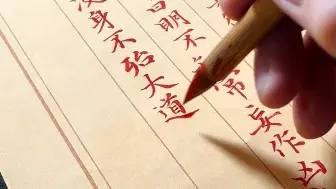 曰明不常妄作凶
身不殆大道